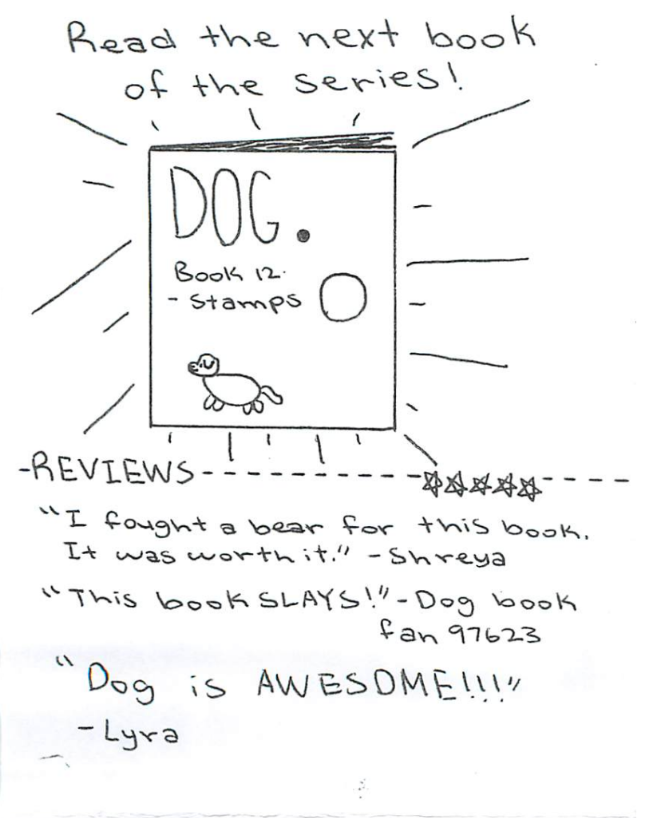 Read the next book
of the series!
DOG.
Book 12.
- Stamps
-REVIEWS- - - - - - - - - - - - - - ☆☆☆☆☆ - - - -
"I fought a bear for this book.
It was worth it." -Shreya
"This book SLAYS!"-Dog book
fan 97623
"Dog is AWESOME!!!"
-Lyra